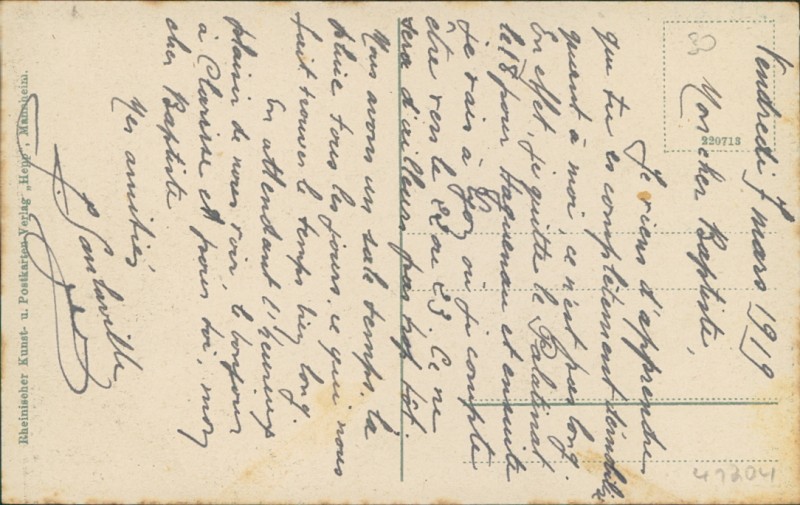 Vendredi 7 mars 1919
Mon cher Baptiste,
Je viens d'apprendre
que tu es complètement démobilisé
quant à moi, ce n'est pas long.
En effet, je quitte le Palatinat
le 18 pour Haguenau et ensuite
je vais à Lyon où je compte
être vers le 22 ou 23. Ce ne
sera d'ailleurs pas trop tôt.
Nous avons un sale temps, la
pluie tous les jours, ce qui nous
fait trouver le temps bien long.
En attendant l'heureux
plaisir de vous voir, le bonjour
à Clarisse et pour toi, mon
cher Baptiste
Mes amitiés
220713
41204
Rheinischer Kunst- u. Postkarten-Verlag „Hepp", Mannheim.